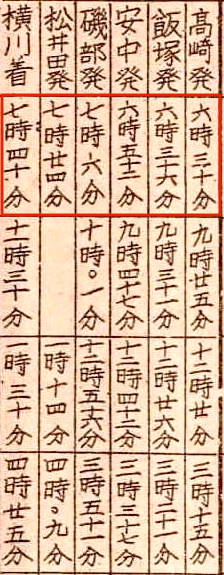 髙崎発 六時三十分 九時廿五分 十二時廿分 三時十五分
飯塚発 六時三十六分 九時三十一分 十二時廿六分 三時二十一分
安中発 六時五十二分 九時四十七分 十二時四十二分 三時三十七分
磯部発 七時六分 十時〇一分 十二時五十六分 三時五十一分
松井田発 七時廿四分 一時十四分 四時〇九分
横川着 七時四十分 十一時三十分 一時三十分 四時廿五分